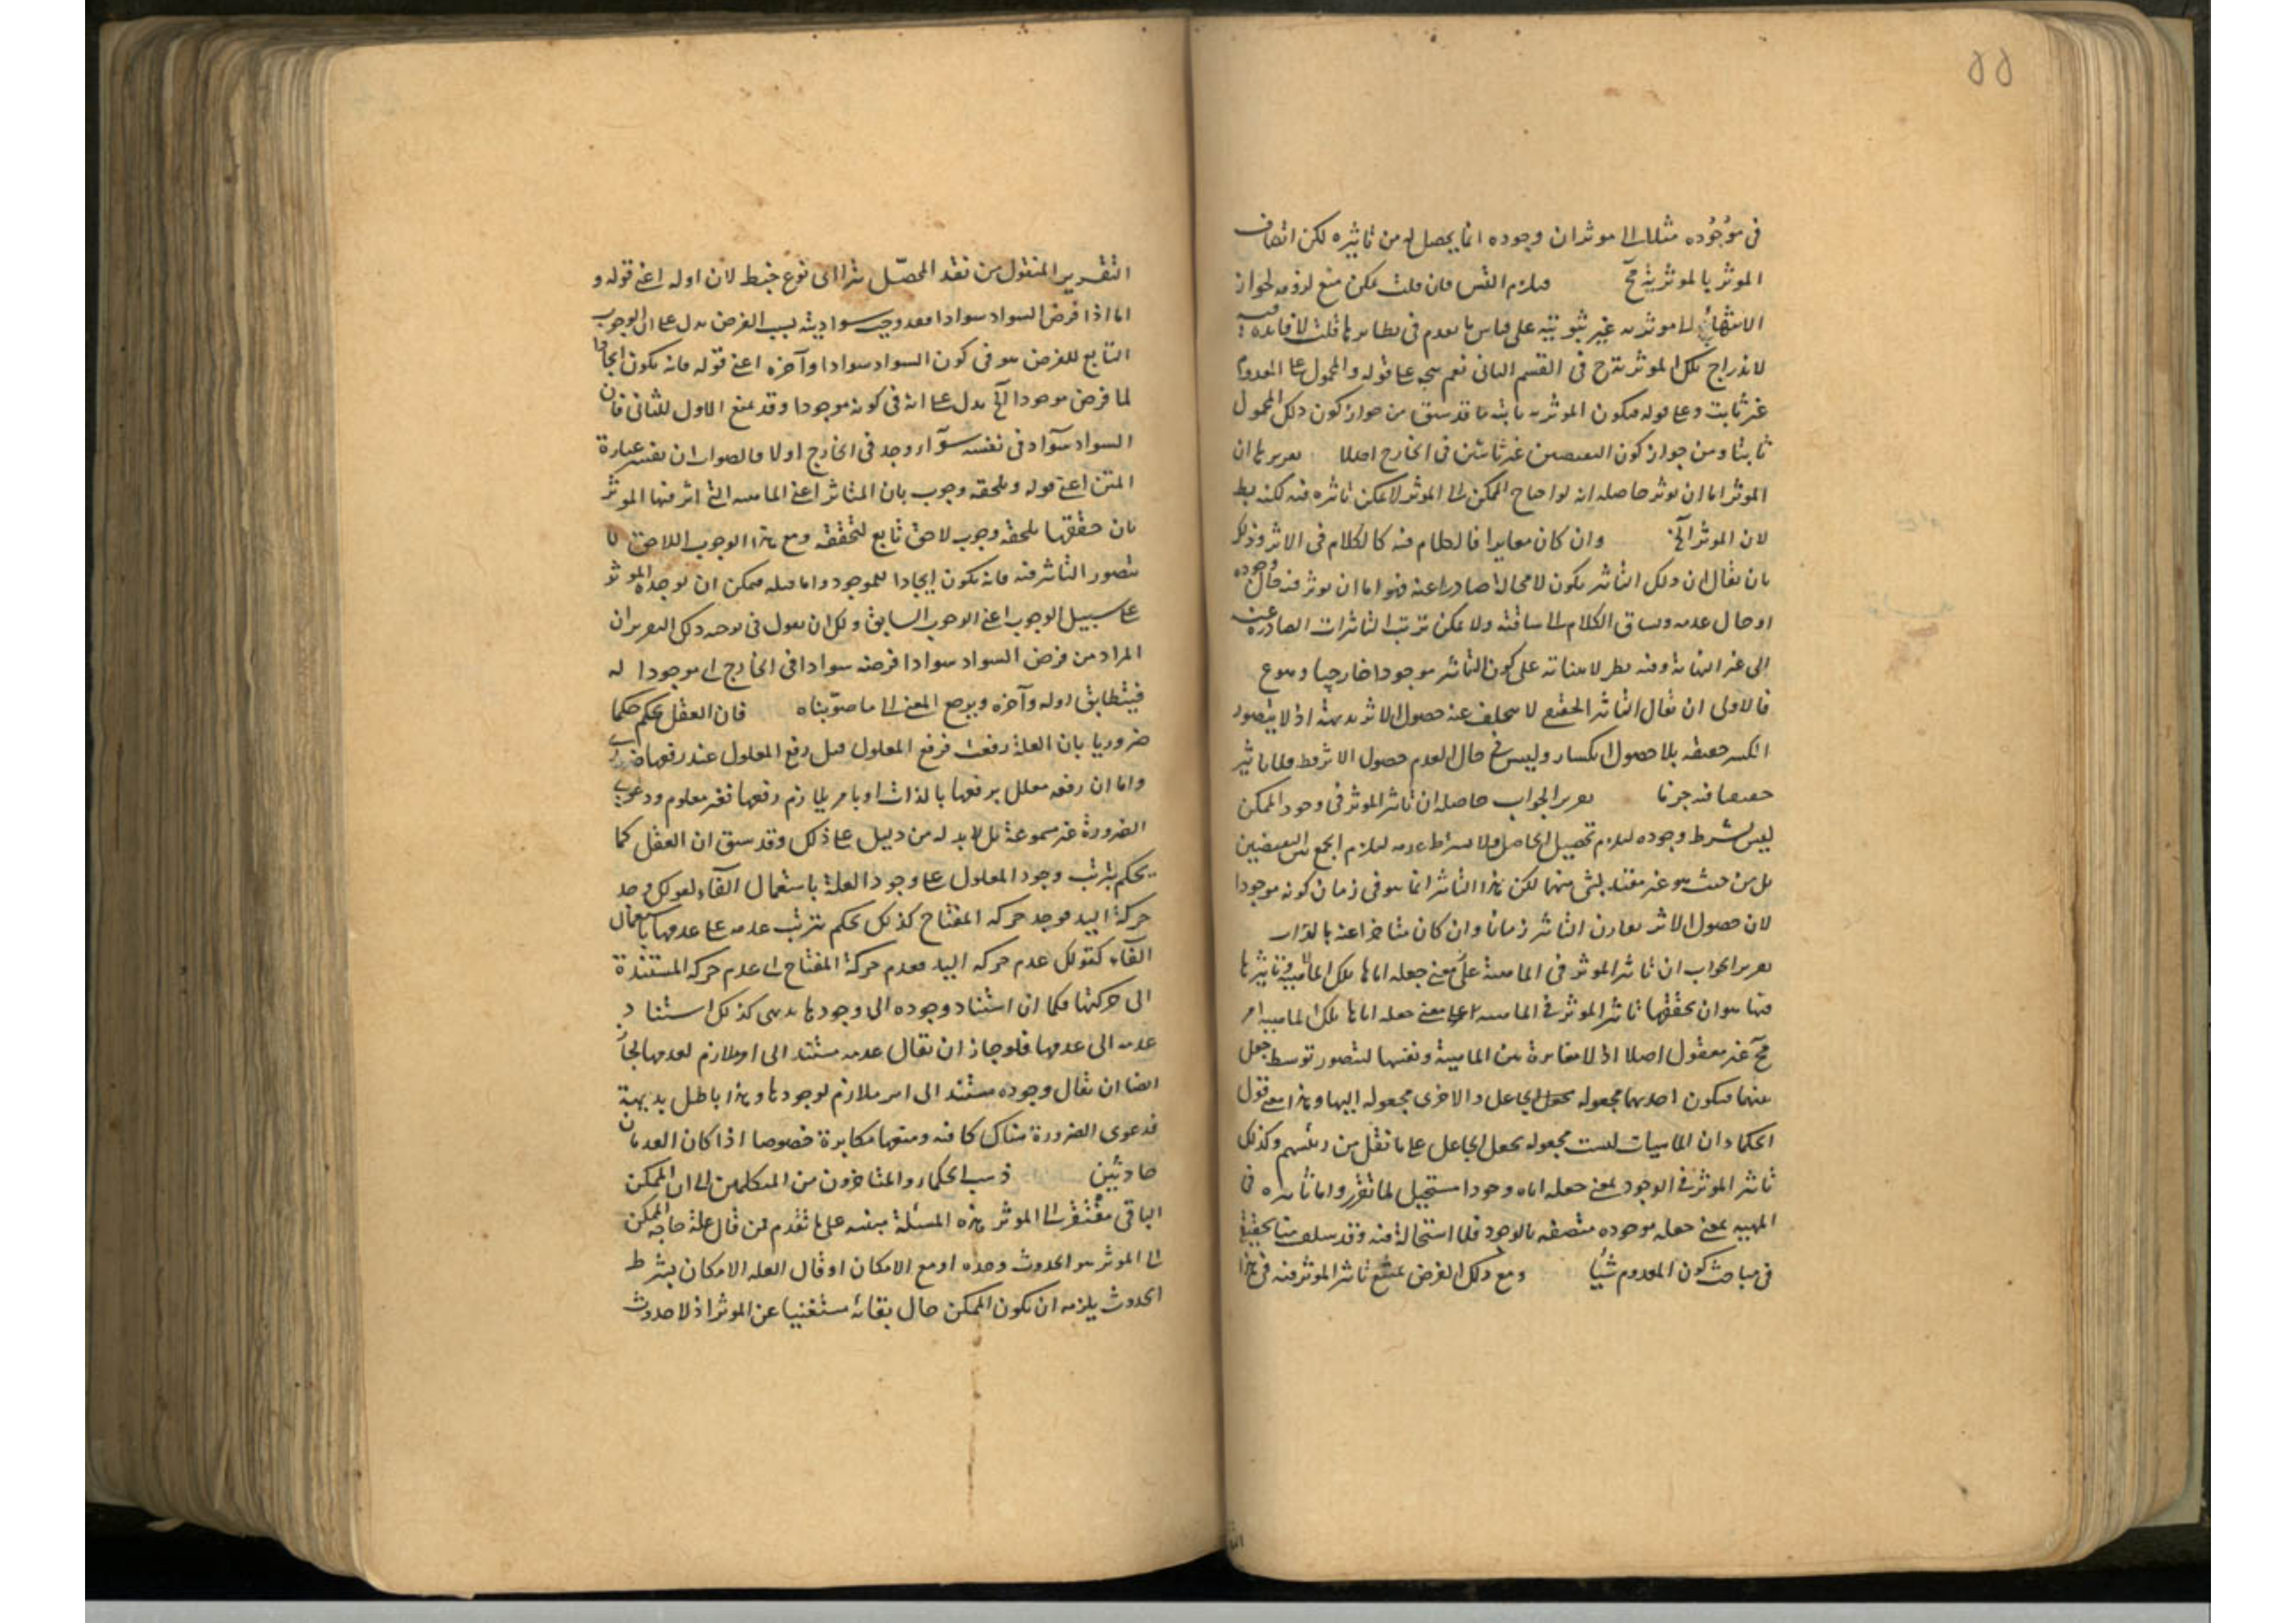 ٥٥
في موجوده مثلا الى موثر لان وجوده انما يحصل له من تاثيره لكن اتصاف
الموثر بالموثرية مح فيلزم التس فان قلت يمكن منع لزومه لجواز
الانتهاء الى موثرية غير ثبوتية على قياس ما تقدم في نظايرها قلت لا فايدة فيه
لاندراج تلك الموثرية ح في القسم الثاني نعم يتجه على قوله والمحمول على المعدوم
غير ثابت وعلى قوله فيكون الموثرية ثابتة ما قد سبق من جواز كون ذلك المحمول
ثابتا ومن جواز كون النقيضين غير ثابتين في الخارج اصلا تقريرها ان
الموثر اما ان يوثر حاصله انه لو احتاج الممكن الى الموثر لامكن تاثيره فيه لكنه بط
لان الموثر الخ وان كان مغايرا فالكلام فيه كالكلام في الاثر وذلك
بان يقال ان ذلك التاثير يكون لا محالة صادرا عنه فهو اما ان يوثر فيه حال وجوده
او حال عدمه ويساق الكلام الى ساقته ولا يمكن ترتب التاثيرات الصادرة عنه
الى غير النهاية وفيه نظر لابتنائه على كون التاثير موجودا خارجيا وهو مم
فالاولى ان يقال التاثير الحقيقي لا يتخلف عنه حصول الاثر بديهة اذ لا يتصور
الكسر حقيقة بلا حصول انكسار وليس في حال العدم حصول الاثر قط فلا تاثير
حقيقيا فيه جزما تقرير الجواب حاصله ان تاثير الموثر في وجود الممكن
ليس بشرط وجوده ليلزم تحصيل الحاصل ولا بشرط عدمه ليلزم الجمع بين النقيضين
بل من حيث هو غير مقيد بشئ منهما لكن هذا التاثير انما هو في زمان كونه موجودا
لان حصول الاثر يقارن التاثير زمانا وان كان متاخرا عنه بالذات
تقرير الجواب ان تاثير الموثر في الماهية على معنى جعله اياها تلك الماهية وتاثيرها
فيها هو ان يحققها تاثير الموثر في الماهية لا على معنى جعله اياها تلك الماهية امر
مح غير معقول اصلا اذ لا مغايرة بين الماهية ونفسها ليتصور توسط جعل
بينهما فيكون احديهما مجعولة بجعل الجاعل والاخرى مجعولة اليها وهذا معنى قول
الحكماء ان الماهيات ليست مجعولة بجعل الجاعل على ما نقل من رئيسهم وكذلك
تاثير الموثر في الوجود بمعنى جعله اياه وجودا مستحيل لما تقرر واما تاثيره في
المهية بمعنى جعله موجودة متصفة بالوجود فلا استحالة فيه وقد سلف منا تحقيقه
في مباحث كون المعدوم شيأ ومع ذلك الفرض يمتنع تاثير الموثر فيه في هذا
التقرير المنقول من نقد المحصّل هذا الى نوع خبط لان اوله اعني قوله و
اما اذا فرض السواد سوادا فقد وجب سواديته بسبب الفرض يدل على ان الوجوب
التابع للفرض هو في كون السواد سوادا وآخره اعني قوله فانه يكون ايجادا
لما فرض موجودا الخ يدل على انه في كونه موجودا وقد يمنع الاول للثاني فان
السواد سواد في نفسه سواء وجد في الخارج اولا فالصواب ان يفسر عبارة
المتن اعني قوله ويلحقه وجوب بان المتاثر اعني الماهية التي اثر فيها الموثر
بان حققها يلحقه وجوب لاحق تابع لتحققه ومع هذا الوجوب اللاحق لا
يتصور التاثير فيه فانه يكون ايجادا للموجود واما قبله فيمكن ان يوجده الموثر
على سبيل الوجوب اعني الوجوب السابق ولك ان تقول في توجيه ذلك التقرير ان
المراد من فرض السواد سوادا فرضه سوادا في الخارج اي موجودا له
فيتطابق اوله وآخره ويرجع المعنى الى ما صوّبناه فان العقل يحكم حكما
ضروريا بان العلة رفعت فرفع المعلول قبل رفع المعلول عند رفعها ضروري
واما ان رفعه معلل برفعها بالذات او بامر يلازم رفعها فغير معلوم ودعوى
الضرورة غير مسموعة بل لا بد له من دليل على ذلك وقد سبق ان العقل كما
يحكم بترتب وجود المعلول على وجود العلة باستعمال الفاء لقولك وجد
حركة اليد فوجد حركة المفتاح كذلك يحكم بترتب عدمه على عدمها باستعمال
الفاء كقولك عدم حركة اليد فعدم حركة المفتاح اي عدم حركة المستندة
الى حركتها فكما ان استناد وجوده الى وجودها بديهي كذلك استناد
عدمه الى عدمها فلو جاز ان يقال عدمه مستند الى امر ملازم لعدمها لجاز
ايضا ان يقال وجوده مستند الى امر ملازم لوجودها وهذا باطل بديهية
فدعوى الضرورة هناك كافية ومنعها مكابرة خصوصا اذا كان العدمان
حادثين ذهب الحكماء والمتاخرون من المتكلمين الى ان الممكن
الباقي مفتقر الى الموثر هذه المسئلة مبنية على ما تقدم فمن قال علة حاجة الممكن
الى الموثر هو الحدوث وحده او مع الامكان او قال العلة الامكان بشرط
الحدوث يلزمه ان يكون الممكن حال بقائه مستغنيا عن الموثر اذ لا حدوث